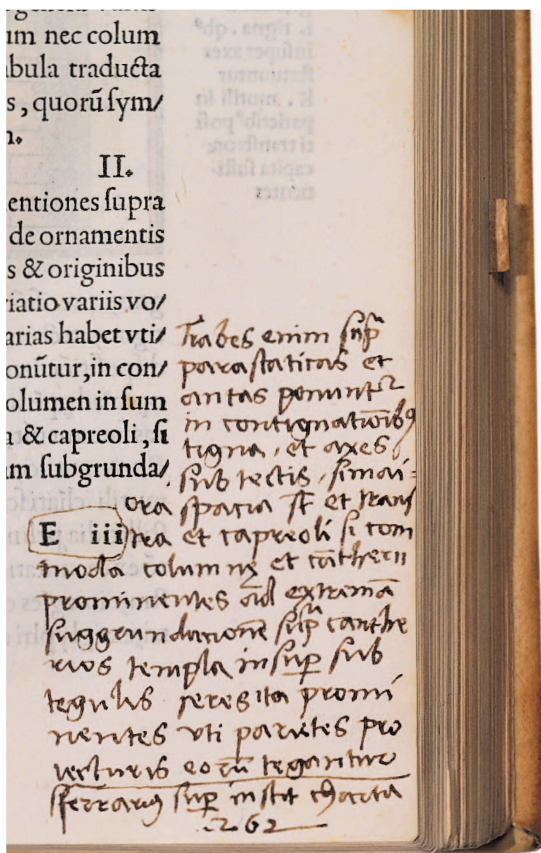 um nec colum
abula traducta
s, quorū sym/
n.
II.
entiones supra
de ornamentis
s & originibus
iatio variis vo/
arias habet vti/
onūtur, in con/
olumen in sum
a & capreoli, si
m subgrunda/
E iii
Trabes enim sup̄
parastaticas et
antas ponunt᷑
in contignatiōibꝰ
tigna, et axes
sub tectis, si mai-
ora spacia st̄ et trans
tra et capreoli si com
moda columnę et cātherii
prominentes ad extremā
suggrundationē sup̄ canthe
rios templa insup̄ sub
tegulis asseres ita promi
nentes vti parietes pro
iecturis eorū tegantur
sup̄ charta
262